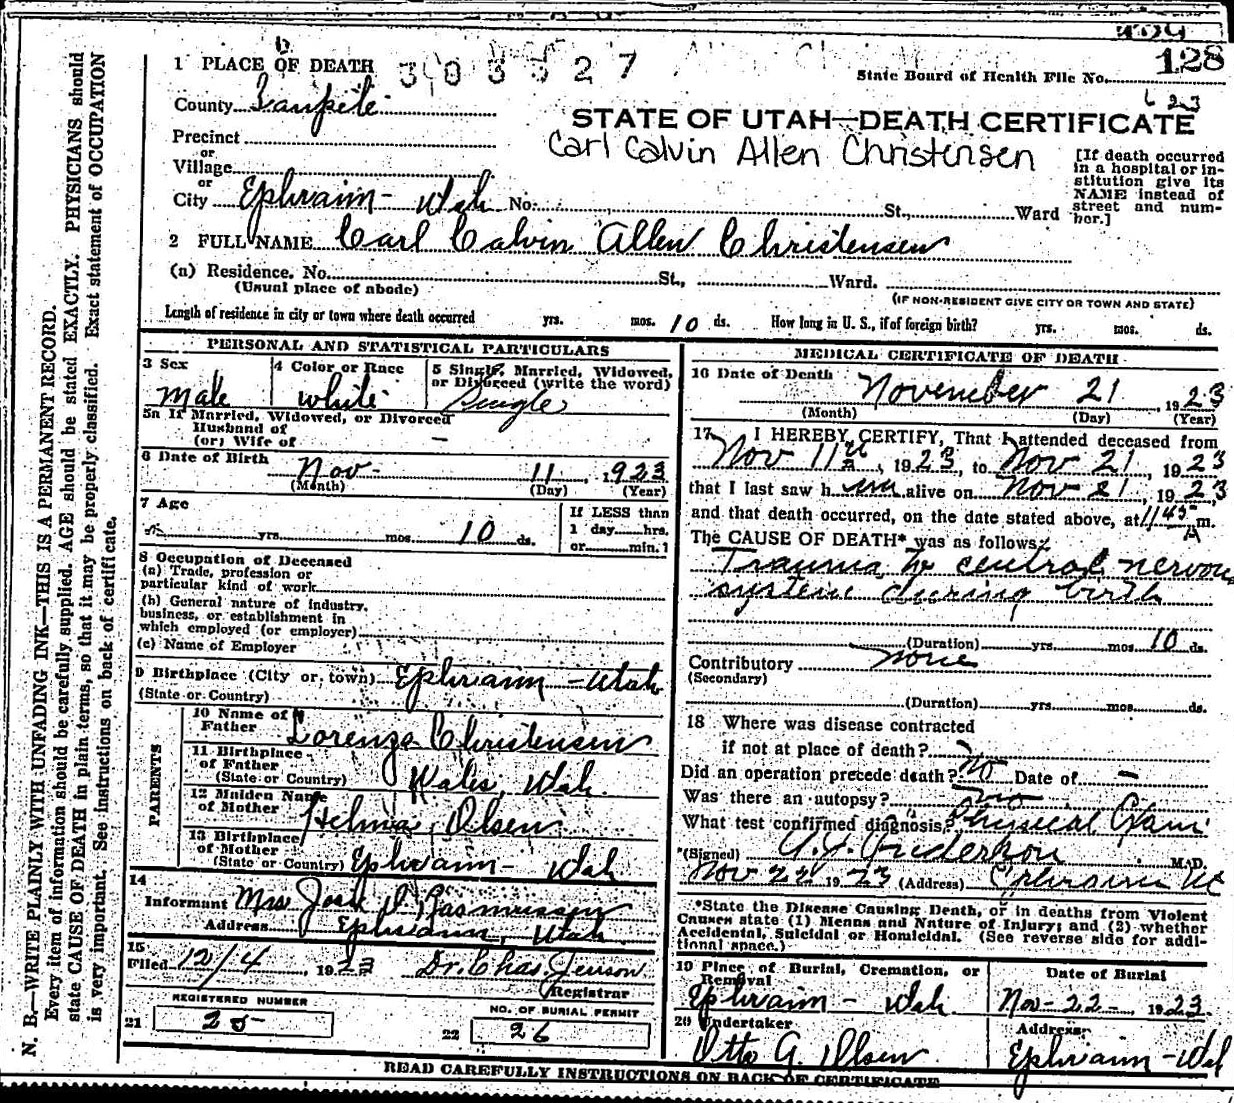 128
1 PLACE OF DEATH
State Board of Health File No.
County Sanpete
STATE OF UTAH—DEATH CERTIFICATE
Carl Calvin Allen Christensen
Precinct
or
Village
or
City Ephraim - Utah No. St., Ward
[If death occurred
in a hospital or in-
stitution give its
NAME instead of
street and num-
ber.]
2 FULL NAME Carl Calvin Allen Christensen
(a) Residence. No. St., Ward.
(Usual place of abode)
(IF NON-RESIDENT GIVE CITY OR TOWN AND STATE)
Length of residence in city or town where death occurred yrs. mos. 10 ds. How long in U. S., if of foreign birth? yrs. mos. ds.
PERSONAL AND STATISTICAL PARTICULARS
3 Sex
Male
4 Color or Race
White
5 Single, Married, Widowed,
or Divorced (write the word)
Single
5a If Married, Widowed, or Divorced
Husband of
(or) Wife of —
6 Date of Birth Nov - 11, 1923
(Month) (Day) (Year)
7 Age
yrs. mos. 10 ds.
If LESS than
1 day....hrs.
or....min.
8 Occupation of Deceased
(a) Trade, profession or
particular kind of work
(b) General nature of industry,
business, or establishment in
which employed (or employer)
(c) Name of Employer
9 Birthplace (City or town) Ephraim - Utah
(State or Country)
PARENTS
10 Name of
Father Lorenzo Christensen
11 Birthplace
of Father
(State or Country) Wales, Utah.
12 Maiden Name
of Mother Helma Olsen
13 Birthplace
of Mother
(State or Country) Ephraim - Utah
14
Informant Mrs Rasmussen
Address Ephraim, Utah.
15
Filed 12/4, 1923 Dr. Chas Jenson
Registrar
REGISTERED NUMBER
21 25
NO. OF BURIAL PERMIT
22 26
MEDICAL CERTIFICATE OF DEATH
16 Date of Death
November 21 1923
(Month) (Day) (Year)
17 I HEREBY CERTIFY, That I attended deceased from
Nov 11th, 1923, to Nov 21, 1923
that I last saw him alive on Nov 21, 1923,
and that death occurred, on the date stated above, at 1145 A m.
The CAUSE OF DEATH* was as follows:
Trauma to central nervous
system during birth
(Duration) yrs. mos. 10 ds.
Contributory none
(Secondary)
(Duration) yrs. mos. ds.
18 Where was disease contracted
if not at place of death?
Did an operation precede death? No Date of —
Was there an autopsy? No
What test confirmed diagnosis? Physical Exam
(Signed) M.D.
Nov 22 1923 (Address) Ephraim Ut
*State the Disease Causing Death, or in deaths from Violent
Causes state (1) Means and Nature of Injury; and (2) whether
Accidental, Suicidal or Homicidal. (See reverse side for addi-
tional space.)
19 Place of Burial, Cremation, or
Removal
Ephraim - Utah
Date of Burial
Nov - 22 - 1923.
20 Undertaker
Otto G. Olsen
Address
Ephraim - Utah
READ CAREFULLY INSTRUCTIONS ON BACK OF CERTIFICATE
N. B.—WRITE PLAINLY WITH UNFADING INK—THIS IS A PERMANENT RECORD.
Every item of information should be carefully supplied. AGE should be stated EXACTLY. PHYSICIANS should
state CAUSE OF DEATH in plain terms, so that it may be properly classified. Exact statement of OCCUPATION
is very important. See instructions on back of certificate.